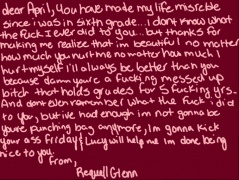 dear April, You have made my life misreble
since i was in sixth grade...I dont know what
the fuck I ever did to you... but thanks for
making me realize that im beautiful no matter
how much you hurt me no matter how much i
hurt myself i'll always be better then you
because damn youre a fucking messed up
bitch that holds grudes for 5 fucking yrs.
And dont even remember what the fuck i did
to you, but ive had enough im not gonna be
youre punching bag anymore, Im gonna kick
your ass Friday & Lucy will help me Im done being
nice to you.
from,
Requell Glenn